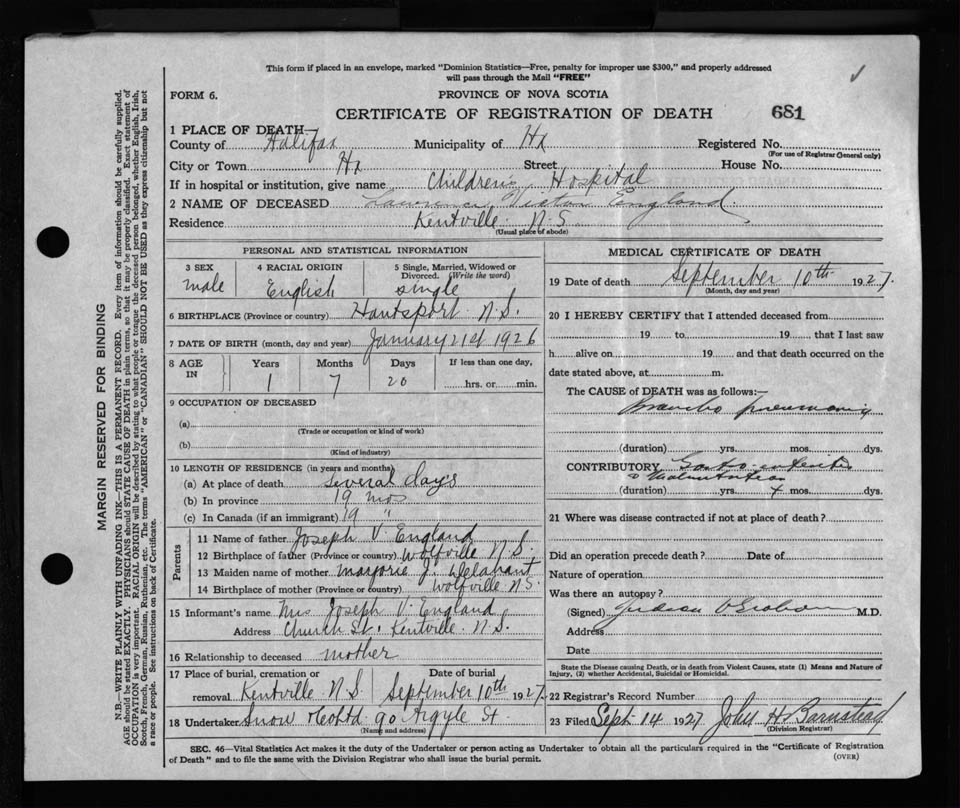 This form if placed in an envelope, marked "Dominion Statistics—Free, penalty for improper use $300," and properly addressed
will pass through the Mail "FREE"
FORM 6.
PROVINCE OF NOVA SCOTIA
CERTIFICATE OF REGISTRATION OF DEATH
681
1 PLACE OF DEATH—
County of Halifax Municipality of Hx Registered No.
(For use of Registrar General only)
City or Town Hx Street House No.
If in hospital or institution, give name Children's Hospital
2 NAME OF DECEASED Victor England
Residence Kentville N.S
(Usual place of abode)
PERSONAL AND STATISTICAL INFORMATION
3 SEX male
4 RACIAL ORIGIN English
5 Single, Married, Widowed or Divorced. (Write the word) single
6 BIRTHPLACE (Province or country) Hantsport N.S.
7 DATE OF BIRTH (month, day and year) January 21st 1926
8 AGE IN Years Months Days If less than one day,
1 7 20 hrs. or min.
9 OCCUPATION OF DECEASED
(a)
(Trade or occupation or kind of work)
(b)
(Kind of industry)
10 LENGTH OF RESIDENCE (in years and months)
(a) At place of death several days
(b) In province 19 mos
(c) In Canada (if an immigrant) 19 "
Parents
11 Name of father Joseph V. England
12 Birthplace of father (Province or country) Wolfville N.S.
13 Maiden name of mother Marjorie J. Delahunt
14 Birthplace of mother (Province or country) Wolfville N.S
15 Informant's name Mrs Joseph V. England
Address Church St. Kentville N.S.
16 Relationship to deceased mother
17 Place of burial, cremation or removal Kentville N.S. Date of burial September 10th 1927
18 Undertaker Snow & Co Ltd 90 Argyle St
(Name and address)
MEDICAL CERTIFICATE OF DEATH
19 Date of death September 10th 1927.
(Month, day and year)
20 I HEREBY CERTIFY that I attended deceased from
19 to 19 that I last saw
h alive on 19 and that death occurred on the
date stated above, at m.
The CAUSE of DEATH was as follows:—
Broncho pneumonia
(duration) yrs. mos. dys.
CONTRIBUTORY Gastro-enteritis
& Malnutrition
(duration) yrs. mos. dys.
21 Where was disease contracted if not at place of death?
Did an operation precede death? Date of
Nature of operation
Was there an autopsy?
(Signed) M.D.
Address
Date
State the Disease causing Death, or in death from Violent Causes, state (1) Means and Nature of
Injury, (2) whether Accidental, Suicidal or Homicidal.
22 Registrar's Record Number
23 Filed Sept 14 1927 John H Barnstead
(Division Registrar)
SEC. 46—Vital Statistics Act makes it the duty of the Undertaker or person acting as Undertaker to obtain all the particulars required in the "Certificate of Registration
of Death" and to file the same with the Division Registrar who shall issue the burial permit.
(OVER)
MARGIN RESERVED FOR BINDING
N.B.—WRITE PLAINLY, WITH UNFADING INK—THIS IS A PERMANENT RECORD. Every item of information should be carefully supplied.
AGE should be stated EXACTLY. PHYSICIANS should STATE CAUSE OF DEATH in plain terms, so that it may be properly classified. Exact statement of
OCCUPATION is very important. RACIAL ORIGIN will be described by stating to what people or tongue the deceased person belonged, whether English, Irish,
Scotch, French, German, Russian, Ruthenian, etc. The terms "AMERICAN" or "CANADIAN" SHOULD NOT BE USED as they express citizenship but not
a race or people. See instructions on back of Certificate.